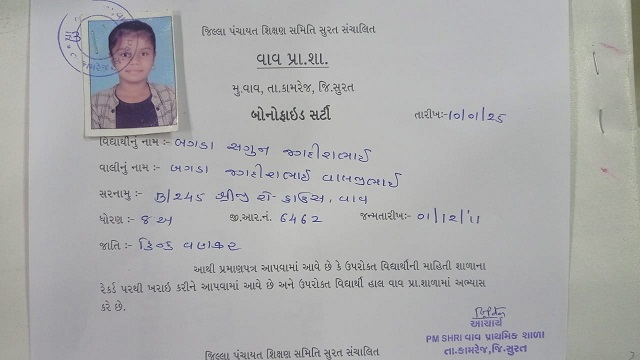 જિલ્લા પંચાયત શિક્ષણ સમિતિ સુરત સંચાલિત
વાવ પ્રા.શા.
મુ.વાવ, તા.કામરેજ, જિ.સુરત
બોનોફાઇડ સર્ટી
તારીખ:-10/01/25
વિદ્યાર્થીનું નામ :- બગડા સગુન જગદીશભાઈ
વાલીનું નામ :- બગડા જગદીશભાઈ વાલજીભાઈ
સરનામુ :- B/245 શ્રીજી રો-હાઉસ, વાવ
ધોરણ :- ૮ અ જી.આર.નં. 6462 જન્મતારીખ:- 01/12/11
જાતિ :- હિન્દુ વણકર
આથી પ્રમાણપત્ર આપવામાં આવે છે કે ઉપરોક્ત વિદ્યાર્થીની માહિતી શાળાના
રેકર્ડ પરથી ખરાઇ કરીને આપવામાં આવે છે અને ઉપરોક્ત વિદ્યાર્થી હાલ વાવ પ્રા.શાળામાં અભ્યાસ
કરે છે.
આચાર્ય
PM SHRI વાવ પ્રાથમિક શાળા
તા.કામરેજ,જિ.સુરત
જિલ્લા પંચાયત શિક્ષણ સમિતિ સુરત સંચાલિત